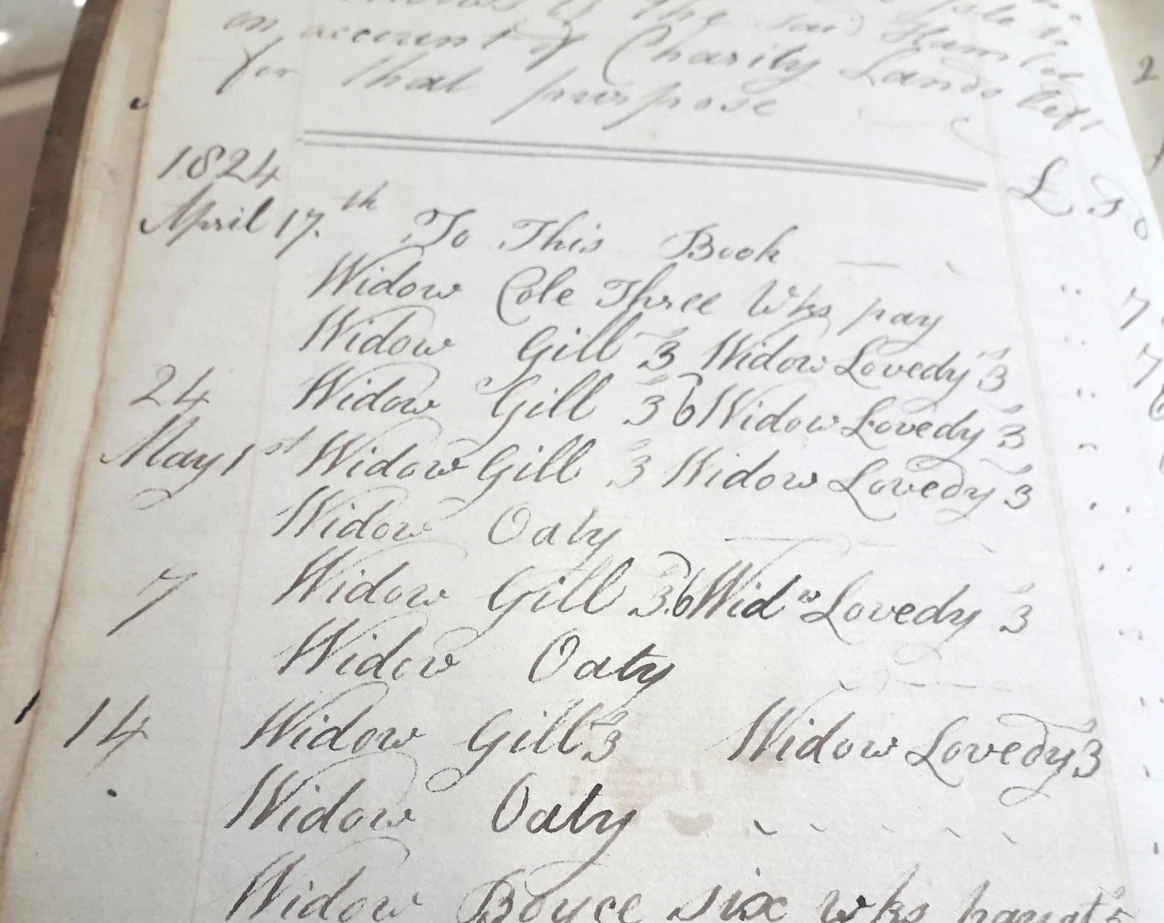 of the said
on account of Charity Lands left
for that purpose
1824 £ S
April 17.th To This Book
Widow Cole Three Wks pay 7
Widow Gill 3 Widow Lovedy 3 7
24 Widow Gill 3 6 Widow Lovedy 3
May 1st Widow Gill 3 Widow Lovedy 3
Widow Oaty
7 Widow Gill 3.6 Widw Lovedy 3
Widow Oaty
14 Widow Gill 3 Widow Lovedy 3
Widow Oaty
Widow Boyce six wks